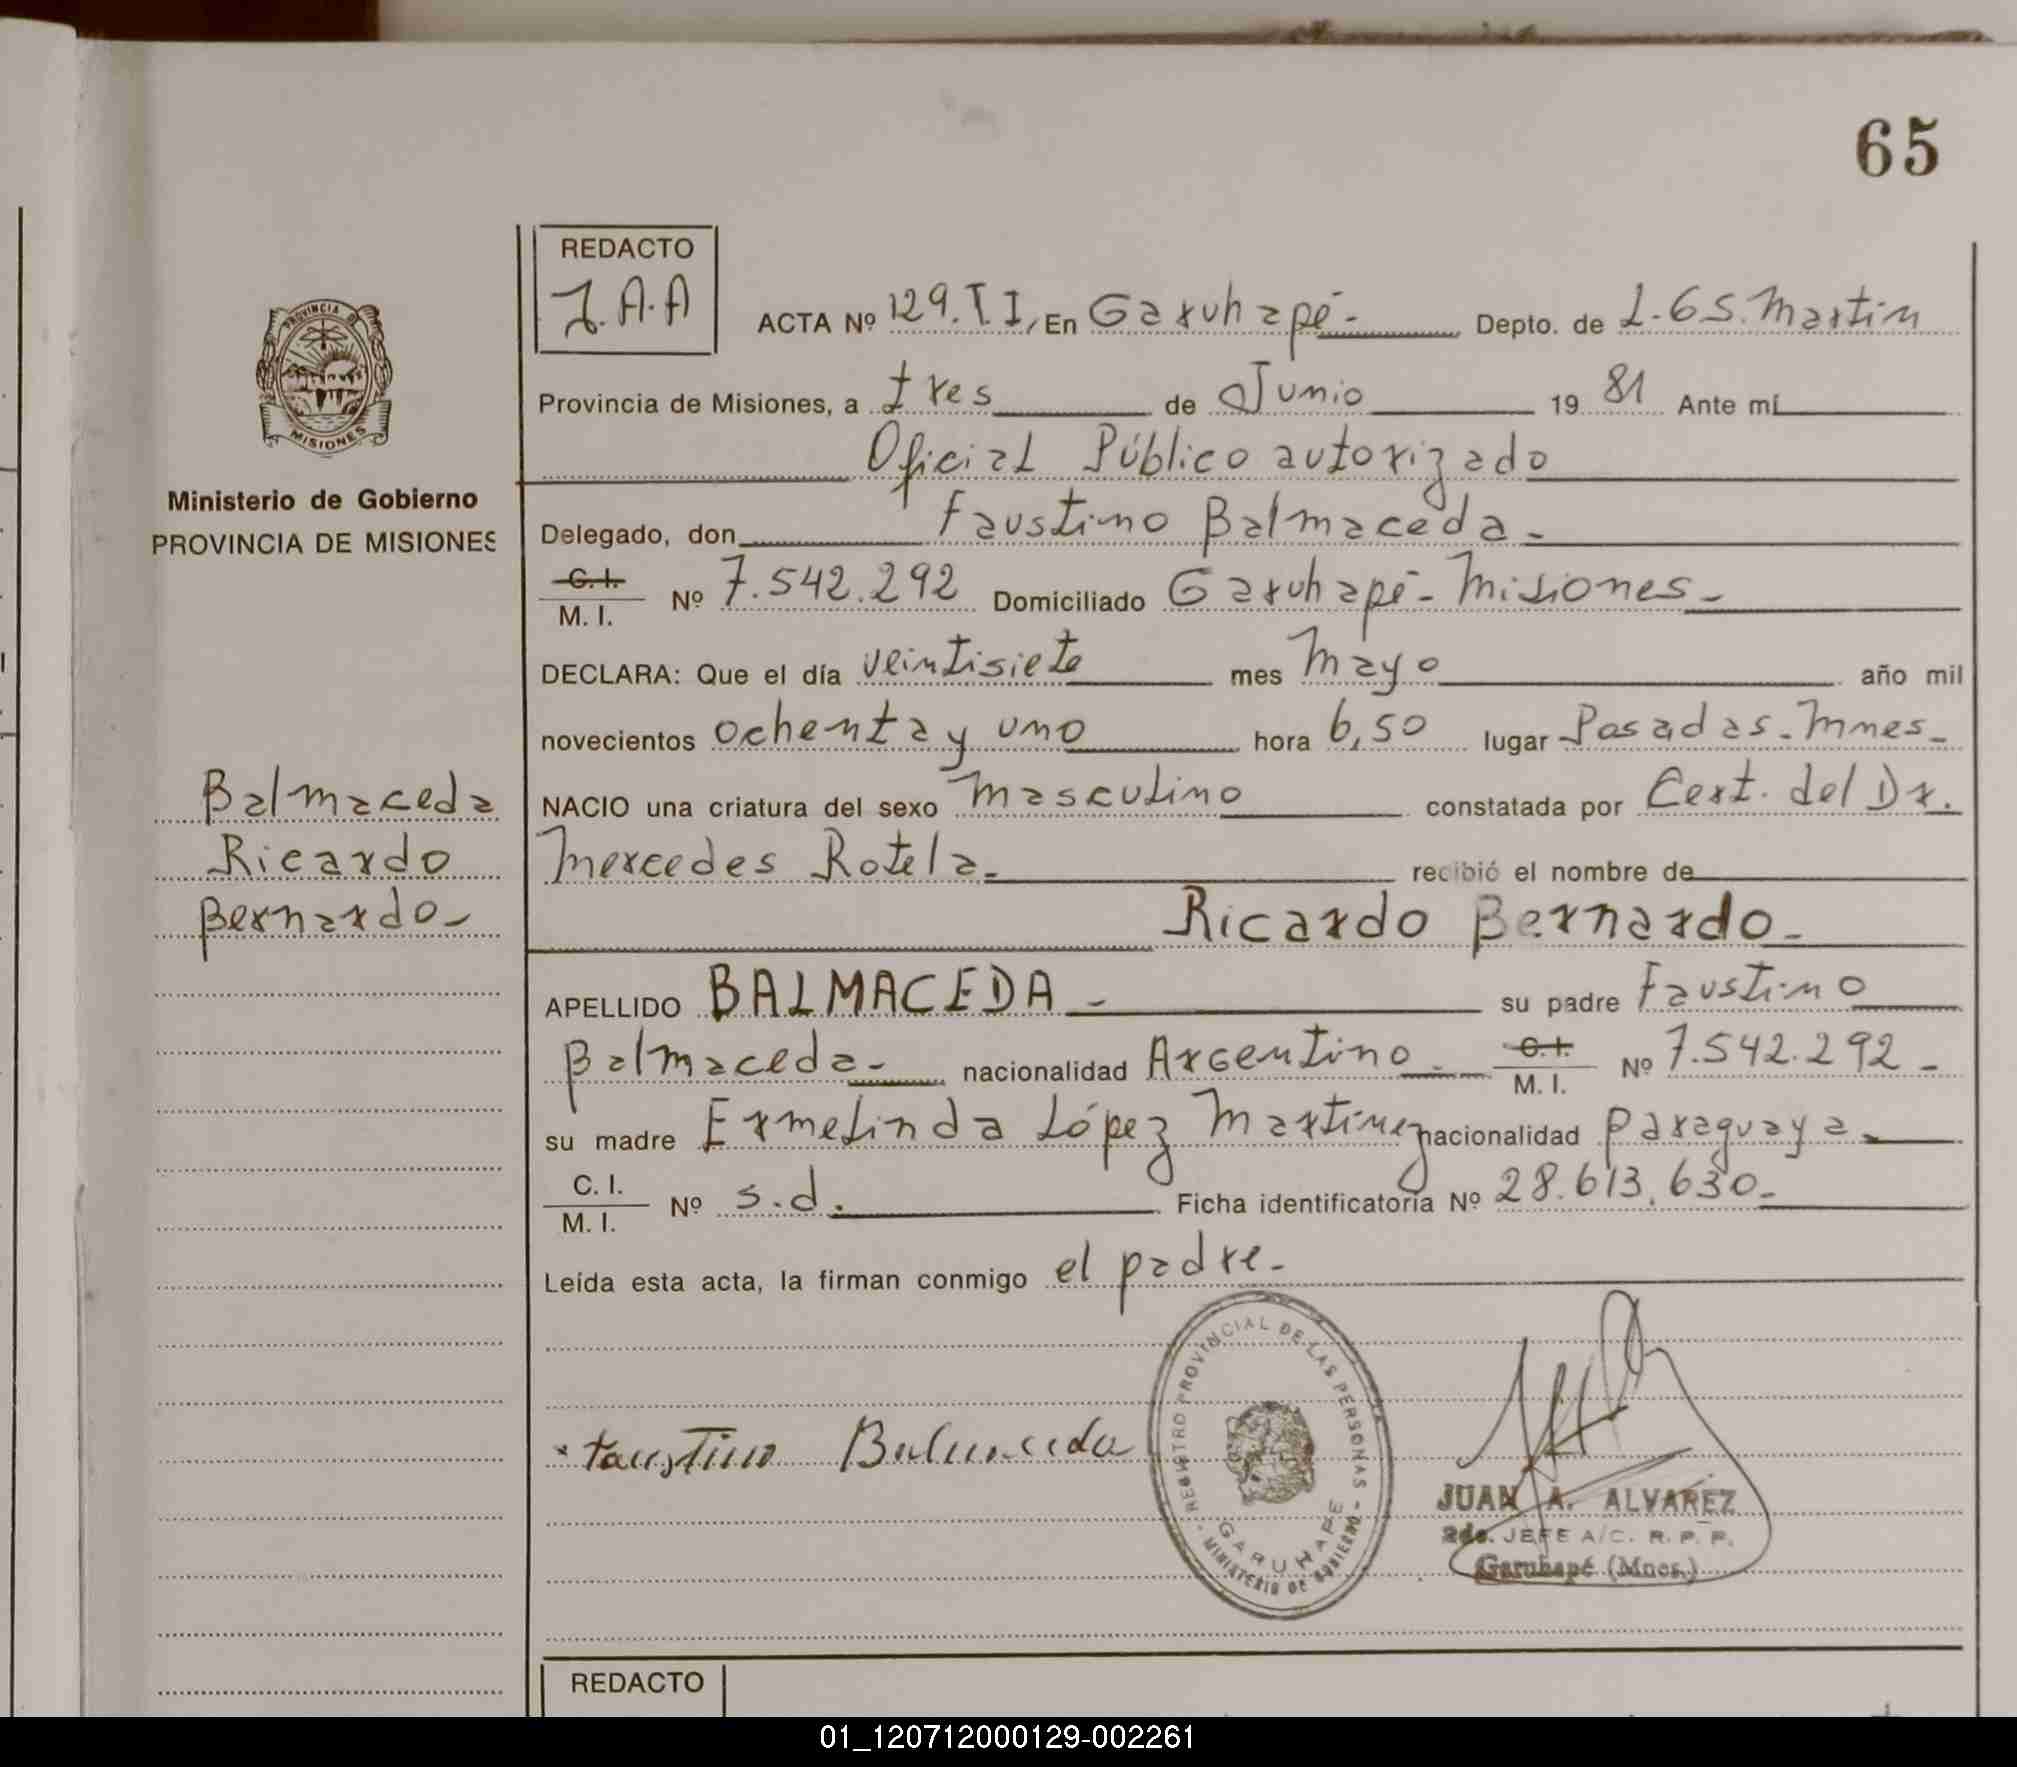 65
REDACTO
J.A.A
ACTA Nº 129.T.I, En Garuhapé- Depto. de L.G.S.Martin
Provincia de Misiones, a tres de Junio 19 81 Ante mí
Oficial Público autorizado
Delegado, don Faustino Balmaceda-
C.I.
M. I. Nº 7.542.292 Domiciliado Garuhapé-Misiones-
DECLARA: Que el día veintisiete mes Mayo año mil
novecientos ochenta y uno hora 6,50 lugar Posadas-Mnes-
NACIO una criatura del sexo Masculino constatada por Cert. del Dr.
Mercedes Rotela- recibió el nombre de
Ricardo Bernardo-
APELLIDO BALMACEDA- su padre Faustino
Balmaceda- nacionalidad Argentino- C.I. M. I. Nº 7.542.292-
su madre Ermelinda López Martinez nacionalidad Paraguaya-
C. I.
M. I. Nº s.d. Ficha identificatoria Nº 28.613.630-
Leída esta acta, la firman conmigo el padre-
Faustino Balmaceda
REGISTRO PROVINCIAL DE LAS PERSONAS - MINISTERIO DE GOBIERNO -
GARUHAPE
JUAN A. ALVAREZ
2do. JEFE A/C. R. P. P.
Garuhapé (Mnes.)
REDACTO
PROVINCIA DE
MISIONES
Ministerio de Gobierno
PROVINCIA DE MISIONES
Balmaceda
Ricardo
Bernardo-
01_120712000129-002261